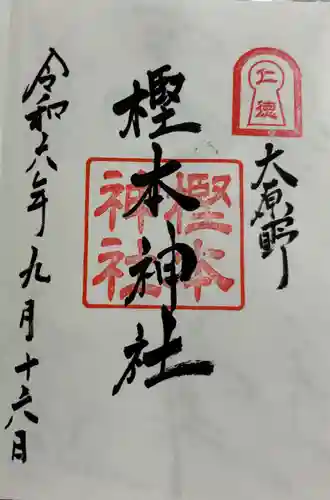 仁徳
大原野
樫本神社
樫本神社
令和六年九月十六日